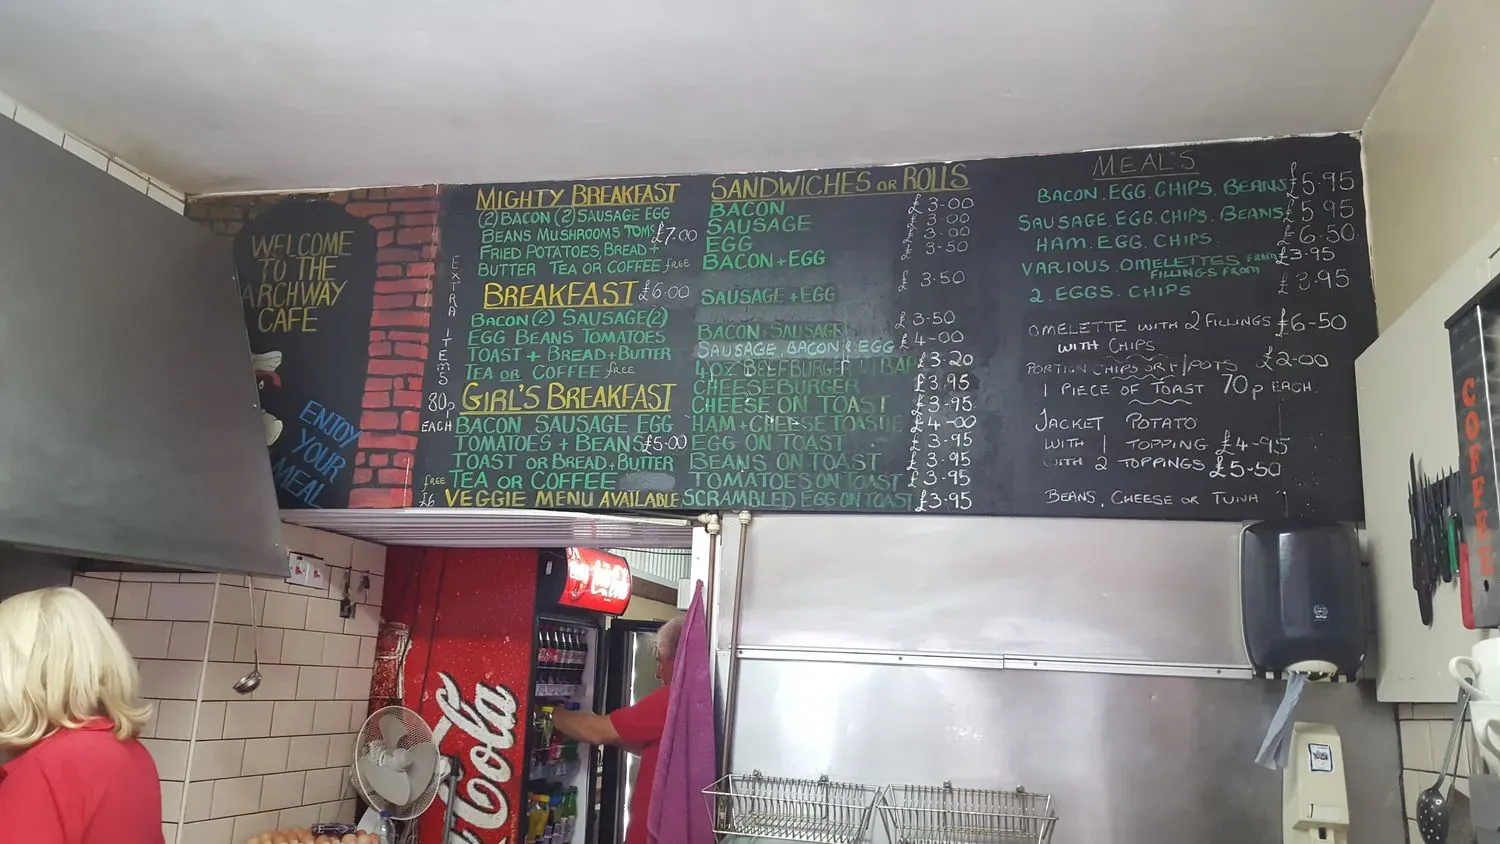 WELCOME
TO THE
ARCHWAY
CAFE
ENJOY
YOUR
MEAL
EXTRA ITEMS
80p
EACH
MIGHTY BREAKFAST
(2) BACON (2) SAUSAGE EGG
BEANS MUSHROOMS TOMS £7.00
FRIED POTATOES, BREAD +
BUTTER TEA OR COFFEE free
BREAKFAST £6.00
BACON (2) SAUSAGE (2)
EGG BEANS TOMATOES
TOAST + BREAD + BUTTER
TEA OR COFFEE free
GIRL'S BREAKFAST
BACON SAUSAGE EGG
TOMATOES + BEANS £5.00
TOAST OR BREAD + BUTTER
free TEA OR COFFEE
£6 VEGGIE MENU AVAILABLE
SANDWICHES OR ROLLS
BACON £3-00
SAUSAGE £3-00
EGG £3-00
BACON + EGG £3-50
SAUSAGE + EGG £3-50
BACON + SAUSAGE £3-50
SAUSAGE, BACON & EGG £4-00
4OZ BEEFBURGER IN BAP £3.20
CHEESEBURGER £3.95
CHEESE ON TOAST £3.95
HAM + CHEESE TOASTIE £4-00
EGG ON TOAST £3.95
BEANS ON TOAST £3.95
TOMATOES ON TOAST £3.95
SCRAMBLED EGG ON TOAST £3.95
MEAL'S
BACON. EGG. CHIPS. BEANS £5.95
SAUSAGE. EGG. CHIPS. BEANS £5.95
HAM. EGG. CHIPS. £6.50
VARIOUS. OMELETTES FROM £3.95
FILLINGS FROM
2. EGGS. CHIPS £3.95
OMELETTE WITH 2 FILLINGS £6-50
WITH CHIPS
PORTION CHIPS OR F/POTS £2-00
1 PIECE OF TOAST 70p EACH.
JACKET POTATO
WITH 1 TOPPING £4-95
WITH 2 TOPPINGS £5-50
BEANS, CHEESE OR TUNA
COFFEE
Coca-Cola
Cola